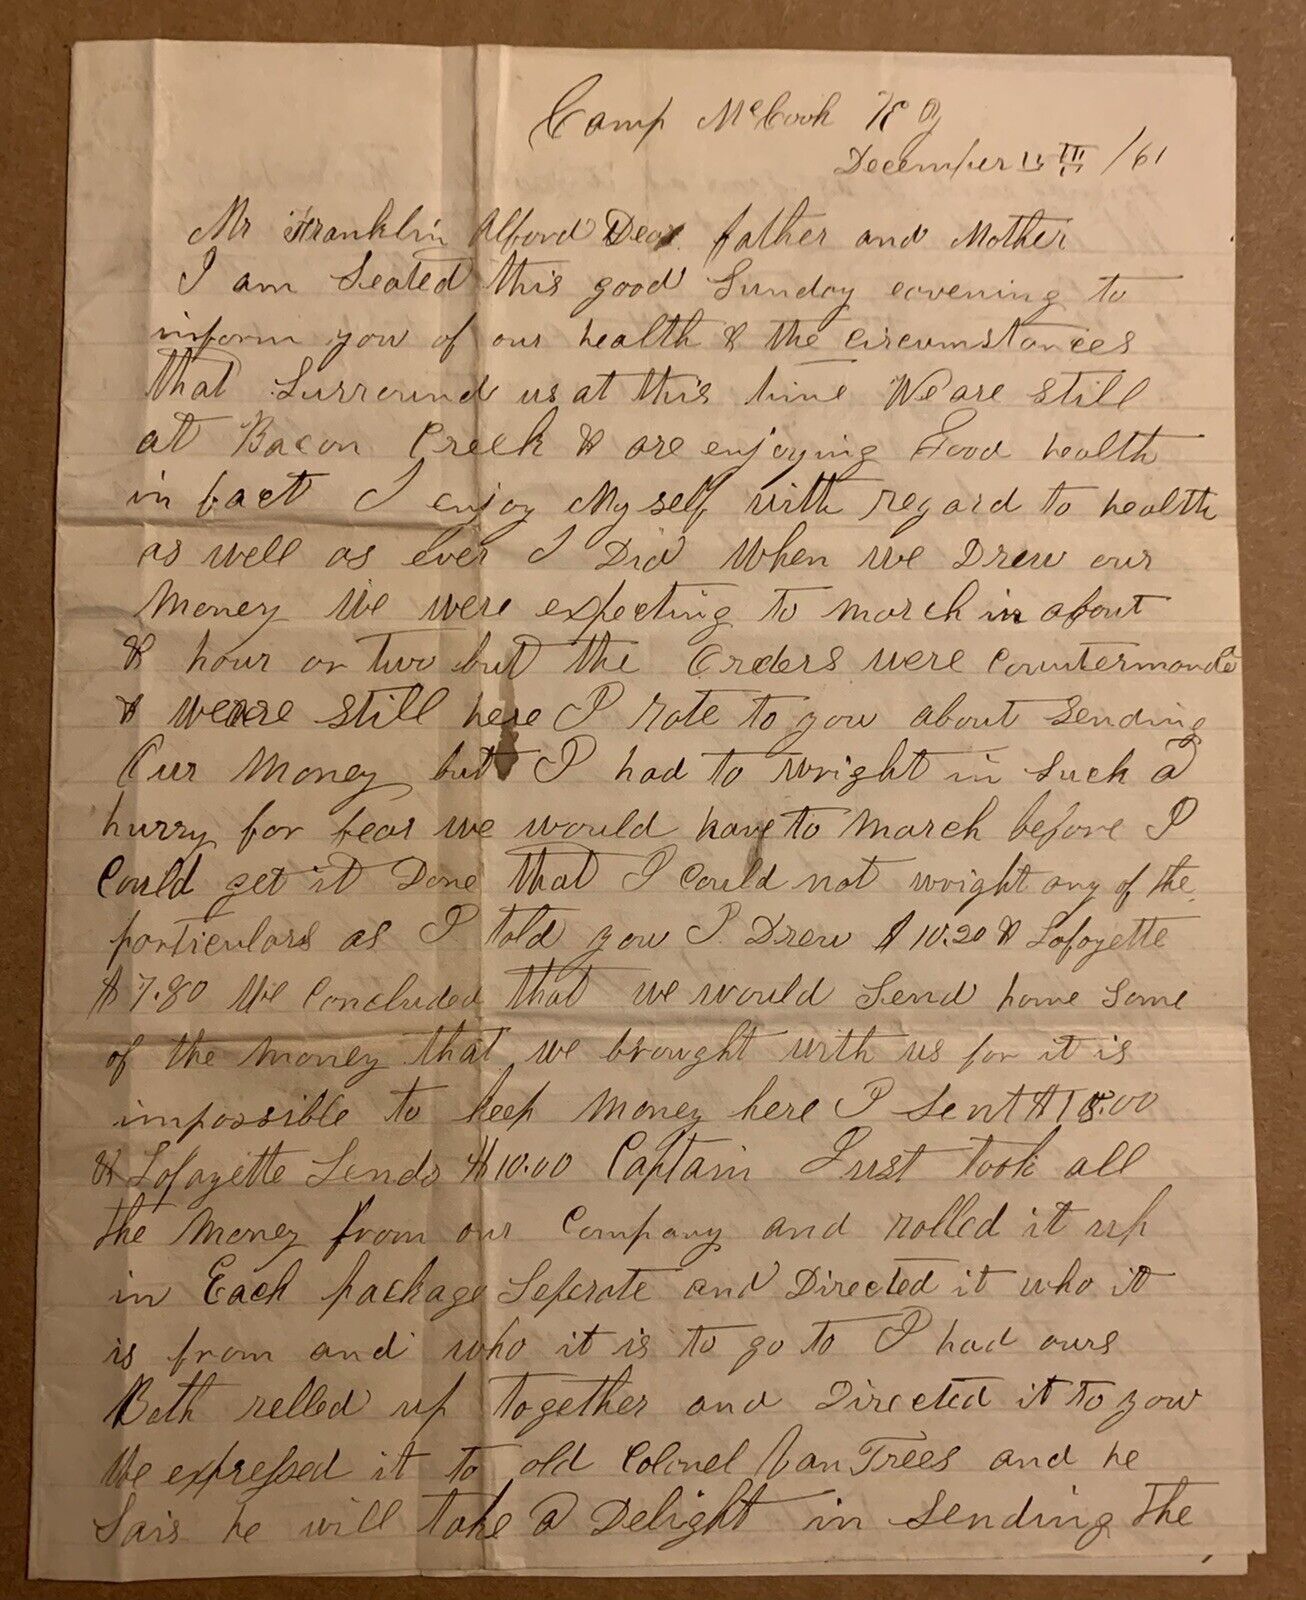 Camp McCook K Y
December /61
Mr Franklin Alford Dear father and Mother
I am Seated this good Sunday eavening to
inform you of our health & the circumstances
that Surround us at this time We are still
at Bacon Creek & are enjoying Good health
in fact I enjoy Myself with regard to health
as well as ever I Did When we Drew our
Money We were expecting to march in about
& hour or two but the Orders were Countermande
& we are still here I rote to you about Sending
Our Money but I had to wright in such a
hurry for fear we would have to March before I
Could get it Done that I could not wright any of the
particulars as I told you I Drew $10.20 & Lafayette
$7.80 We Concluded that we would Send home Some
of the money that we brought with us for it is
impossible to keep Money here I Sent $18.00
& Lafayette Sends $10.00 Captain Just took all
the Money from our Company and rolled it up
in Each package Seperate and Directed it who it
is from and who it is to go to I had ours
Both rolled up together and Directed it to you
We expressed it to old Colonel Van Trees and he
Sais he will take a Delight in Sending the